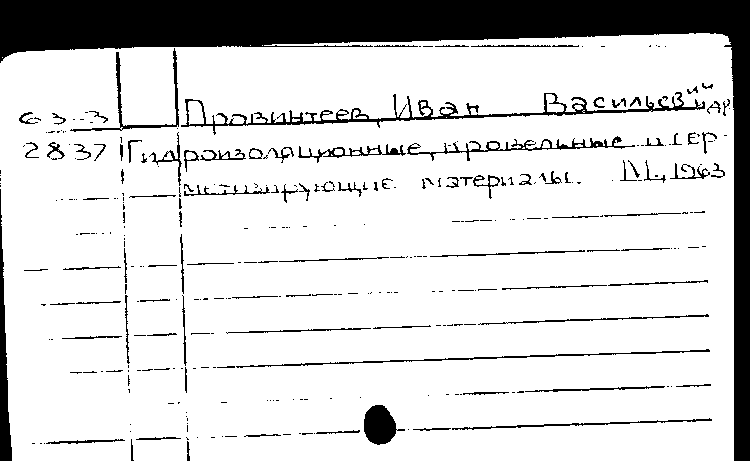 63-3 Провинтеев, Иван Васильевич и др.
2837 Гидроизоляционные, кровельные и гер-
метизирующие материалы. М., 1963